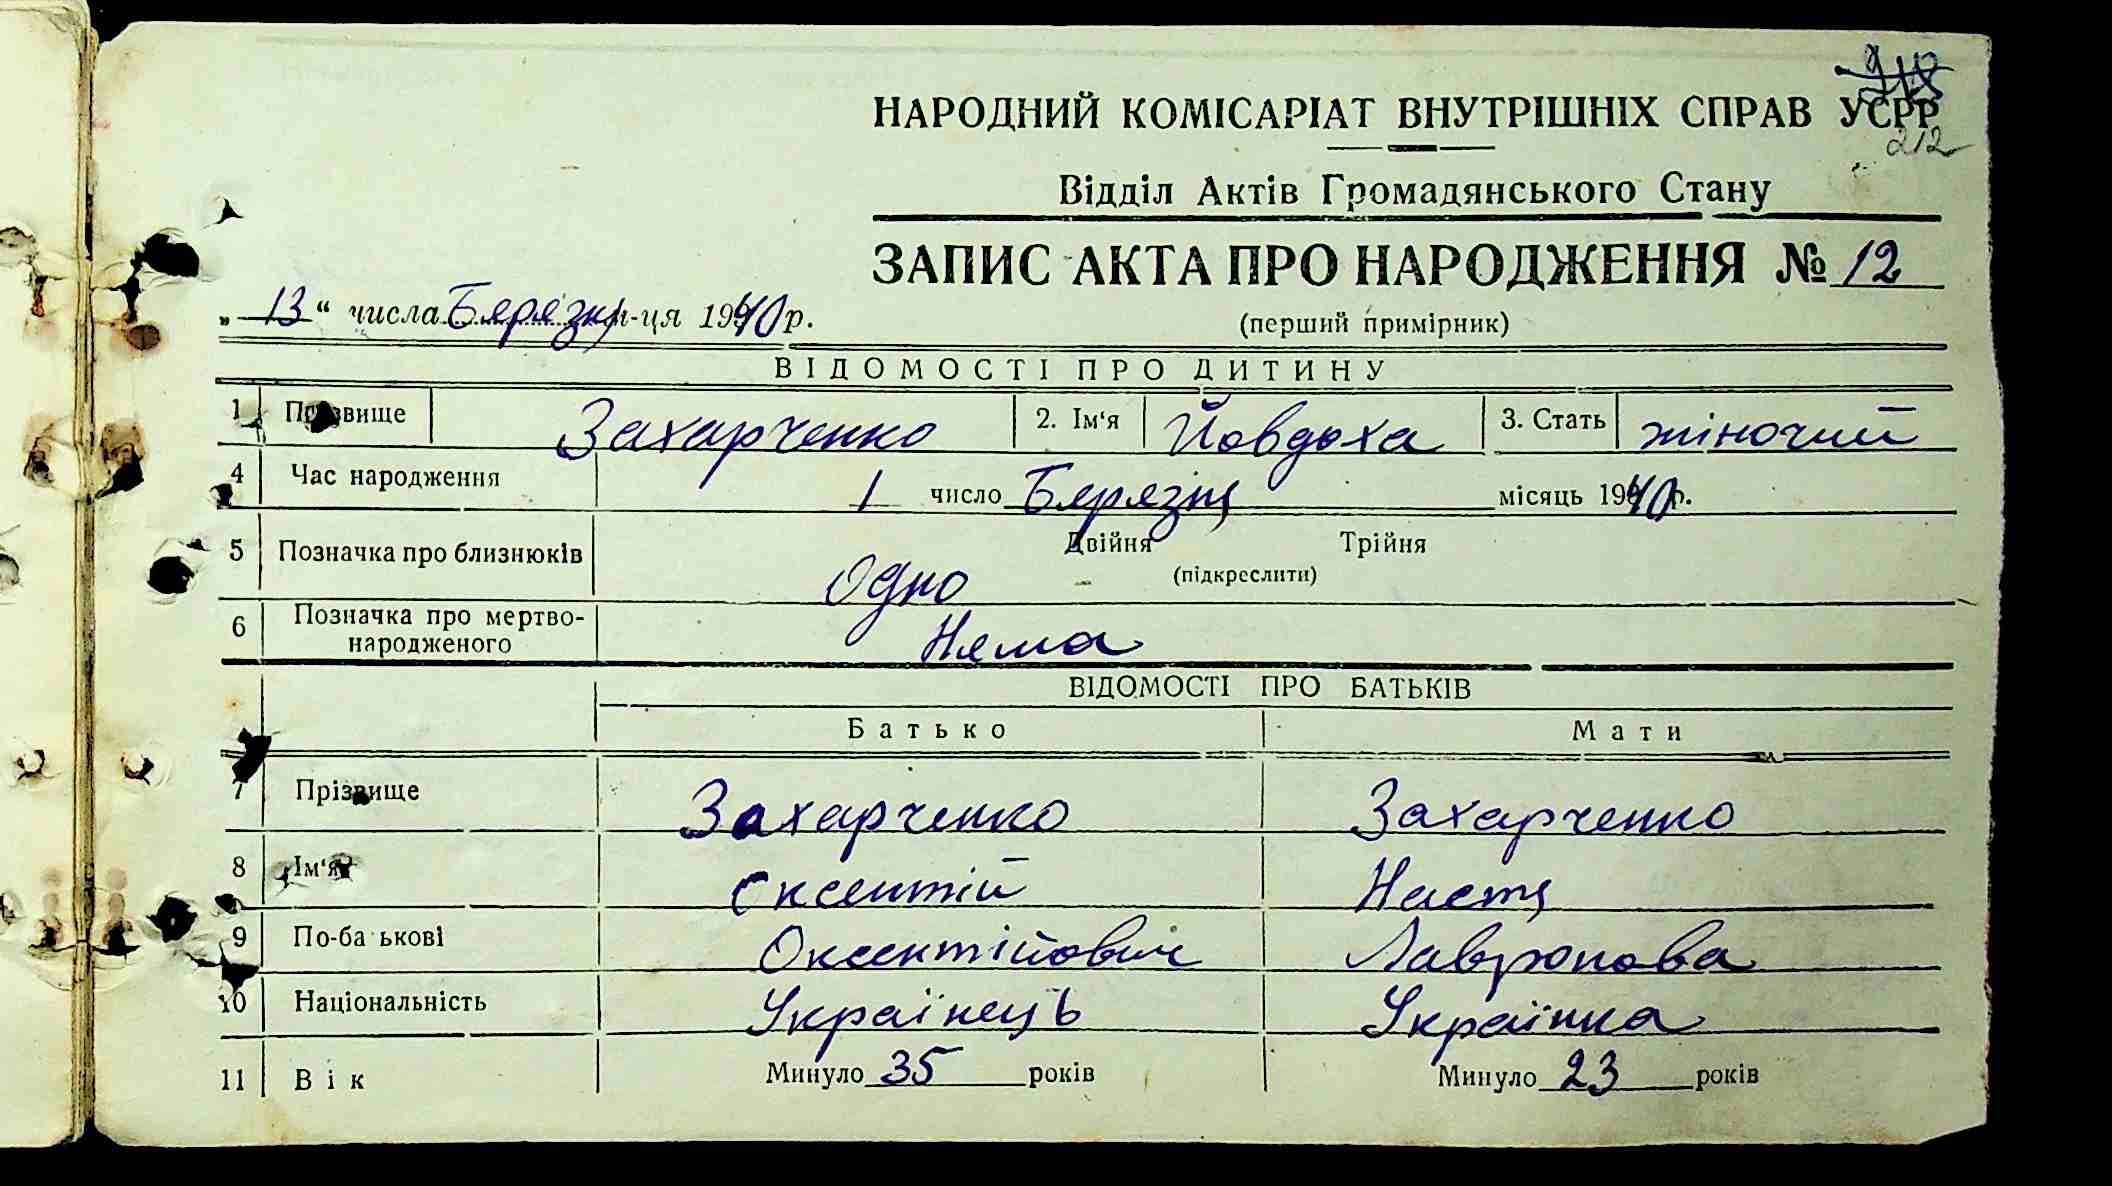 НАРОДНИЙ КОМІСАРІАТ ВНУТРІШНІХ СПРАВ УСРР
212
Відділ Актів Громадянського Стану
ЗАПИС АКТА ПРО НАРОДЖЕННЯ № 12
„ 13 “ числа Бярязня м-ця 1940 р.
(перший примірник)
ВІДОМОСТІ ПРО ДИТИНУ
1 Прізвище Захарченко 2. Ім‘я Йовдоха 3. Стать жіночий
4 Час народження 1 число Бярязня місяць 1940 р.
5 Позначка про близнюків Одно Двійня Трійня
(підкреслити)
6 Позначка про мертво-
народженого Няма
ВІДОМОСТІ ПРО БАТЬКІВ
Батько Мати
7 Прізвище Захарченко Захарченко
8 Ім‘я Оксентій Настя
9 По-ба ькові Оксентійович Лавронова
10 Національність Українець Українка
11 Вік Минуло 35 років Минуло 23 років